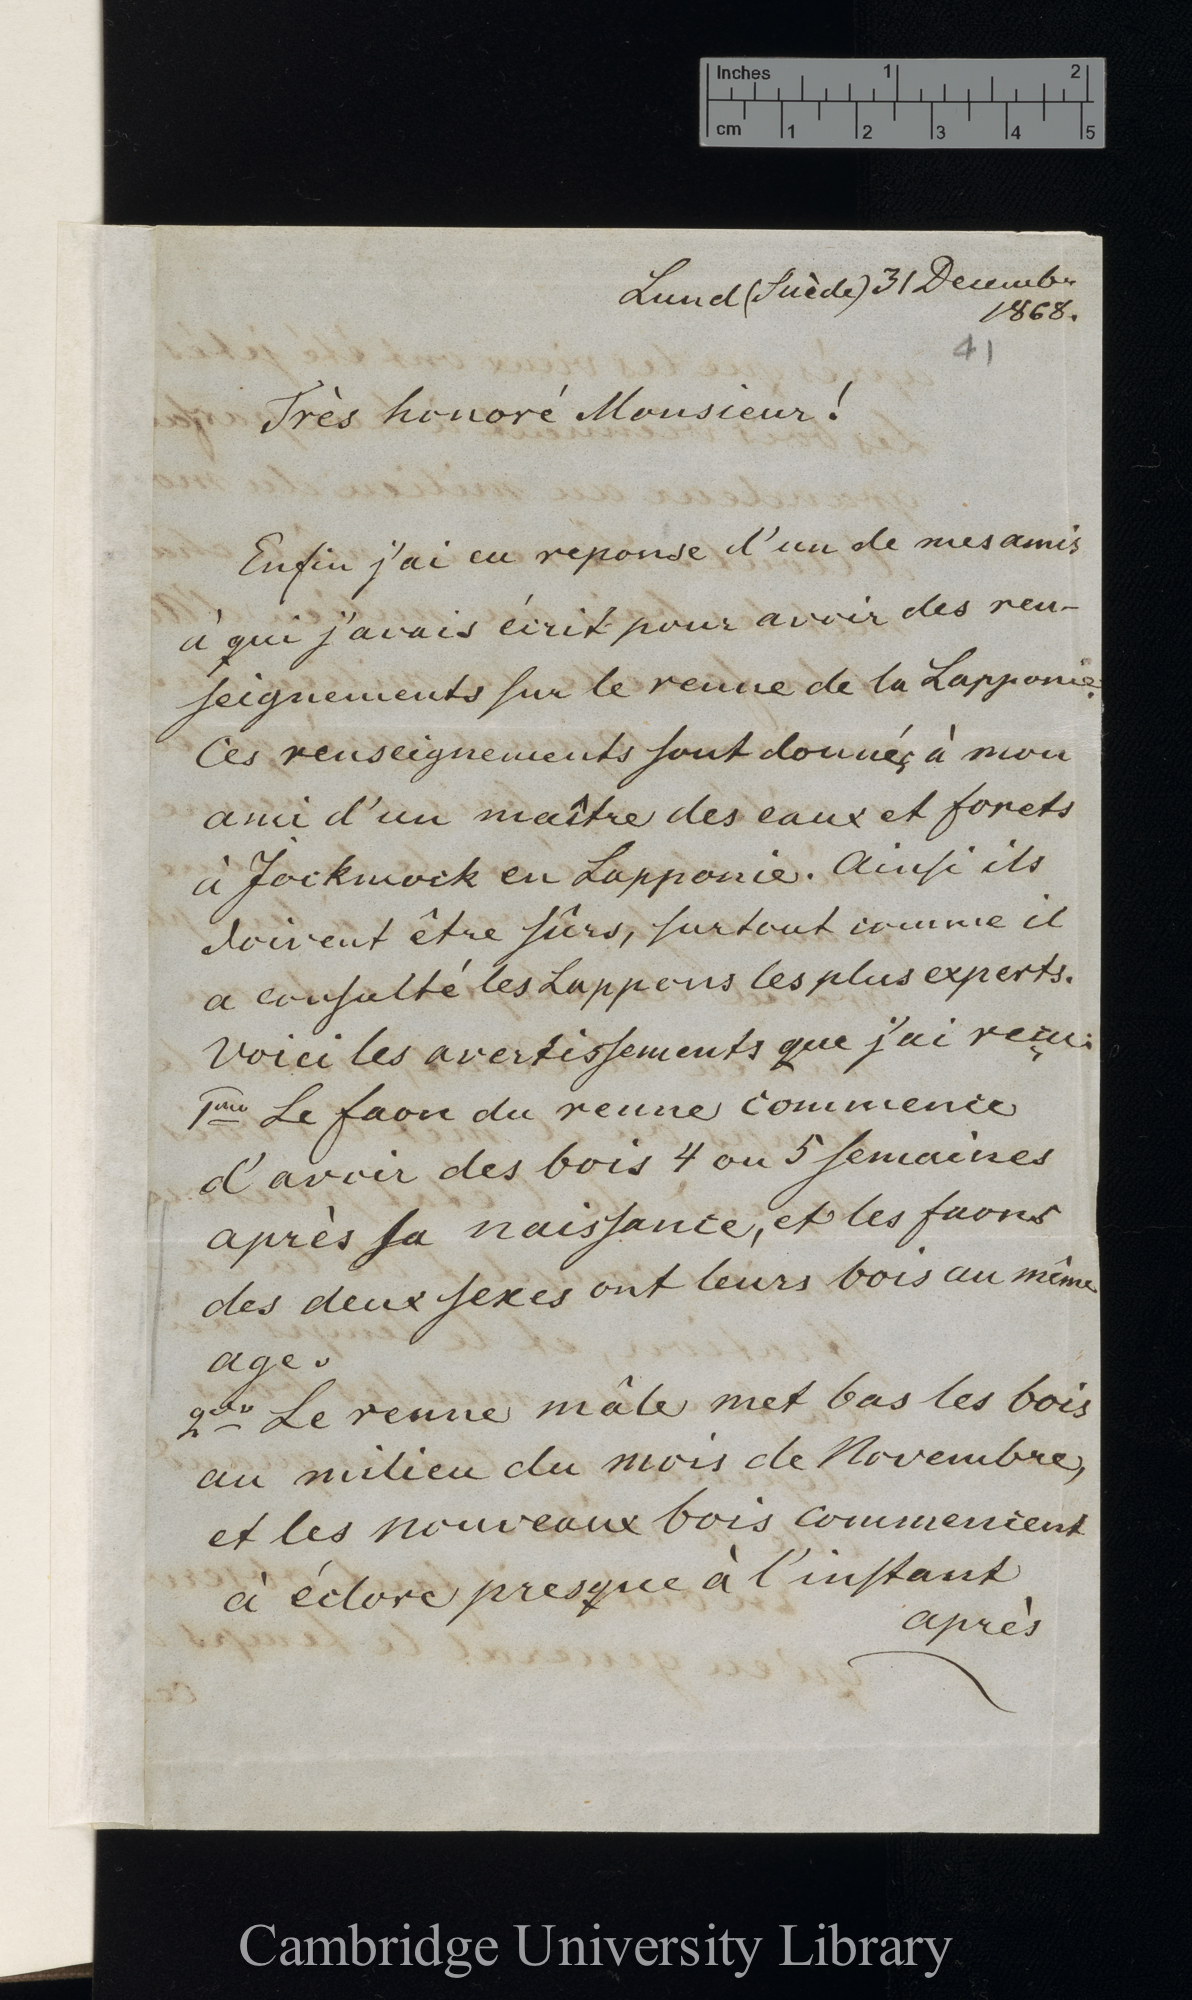 Inches 1 2
cm 1 2 3 4 5
Lund (Suède) 31 Decembr
1868.
41
Très honoré Monsieur!
Enfin j'ai eu reponse d'un de mes amis
à qui j'avais écrit pour avoir des ren-
seignements sur le renne de la Lapponie.
Ces renseignements sont donnés à mon
ami d'un maître des eaux et forets
à Jockmock en Lapponie. Ainsi ils
doivent être sûrs, surtout comme il
a consulté les Lappons les plus experts.
Voici les avertissements que j'ai reçu:
1mo Le faon du renne commence
d'avoir des bois 4 ou 5 semaines
après sa naissance, et les faons
des deux sexes ont leurs bois au même
age.
2do Le renne mâle met bas les bois
au milieu du mois de Novembre,
et les nouveaux bois commencent
à éclore presque à l'instant
après
Cambridge University Library